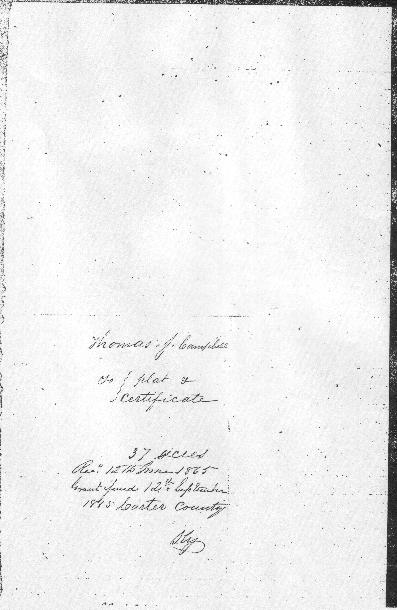 Thomas J. Campbell
to } plat &
certificate
37 acres
Recd 12th June 1865
Grant issued 12th September
1865 Carter County
Ky